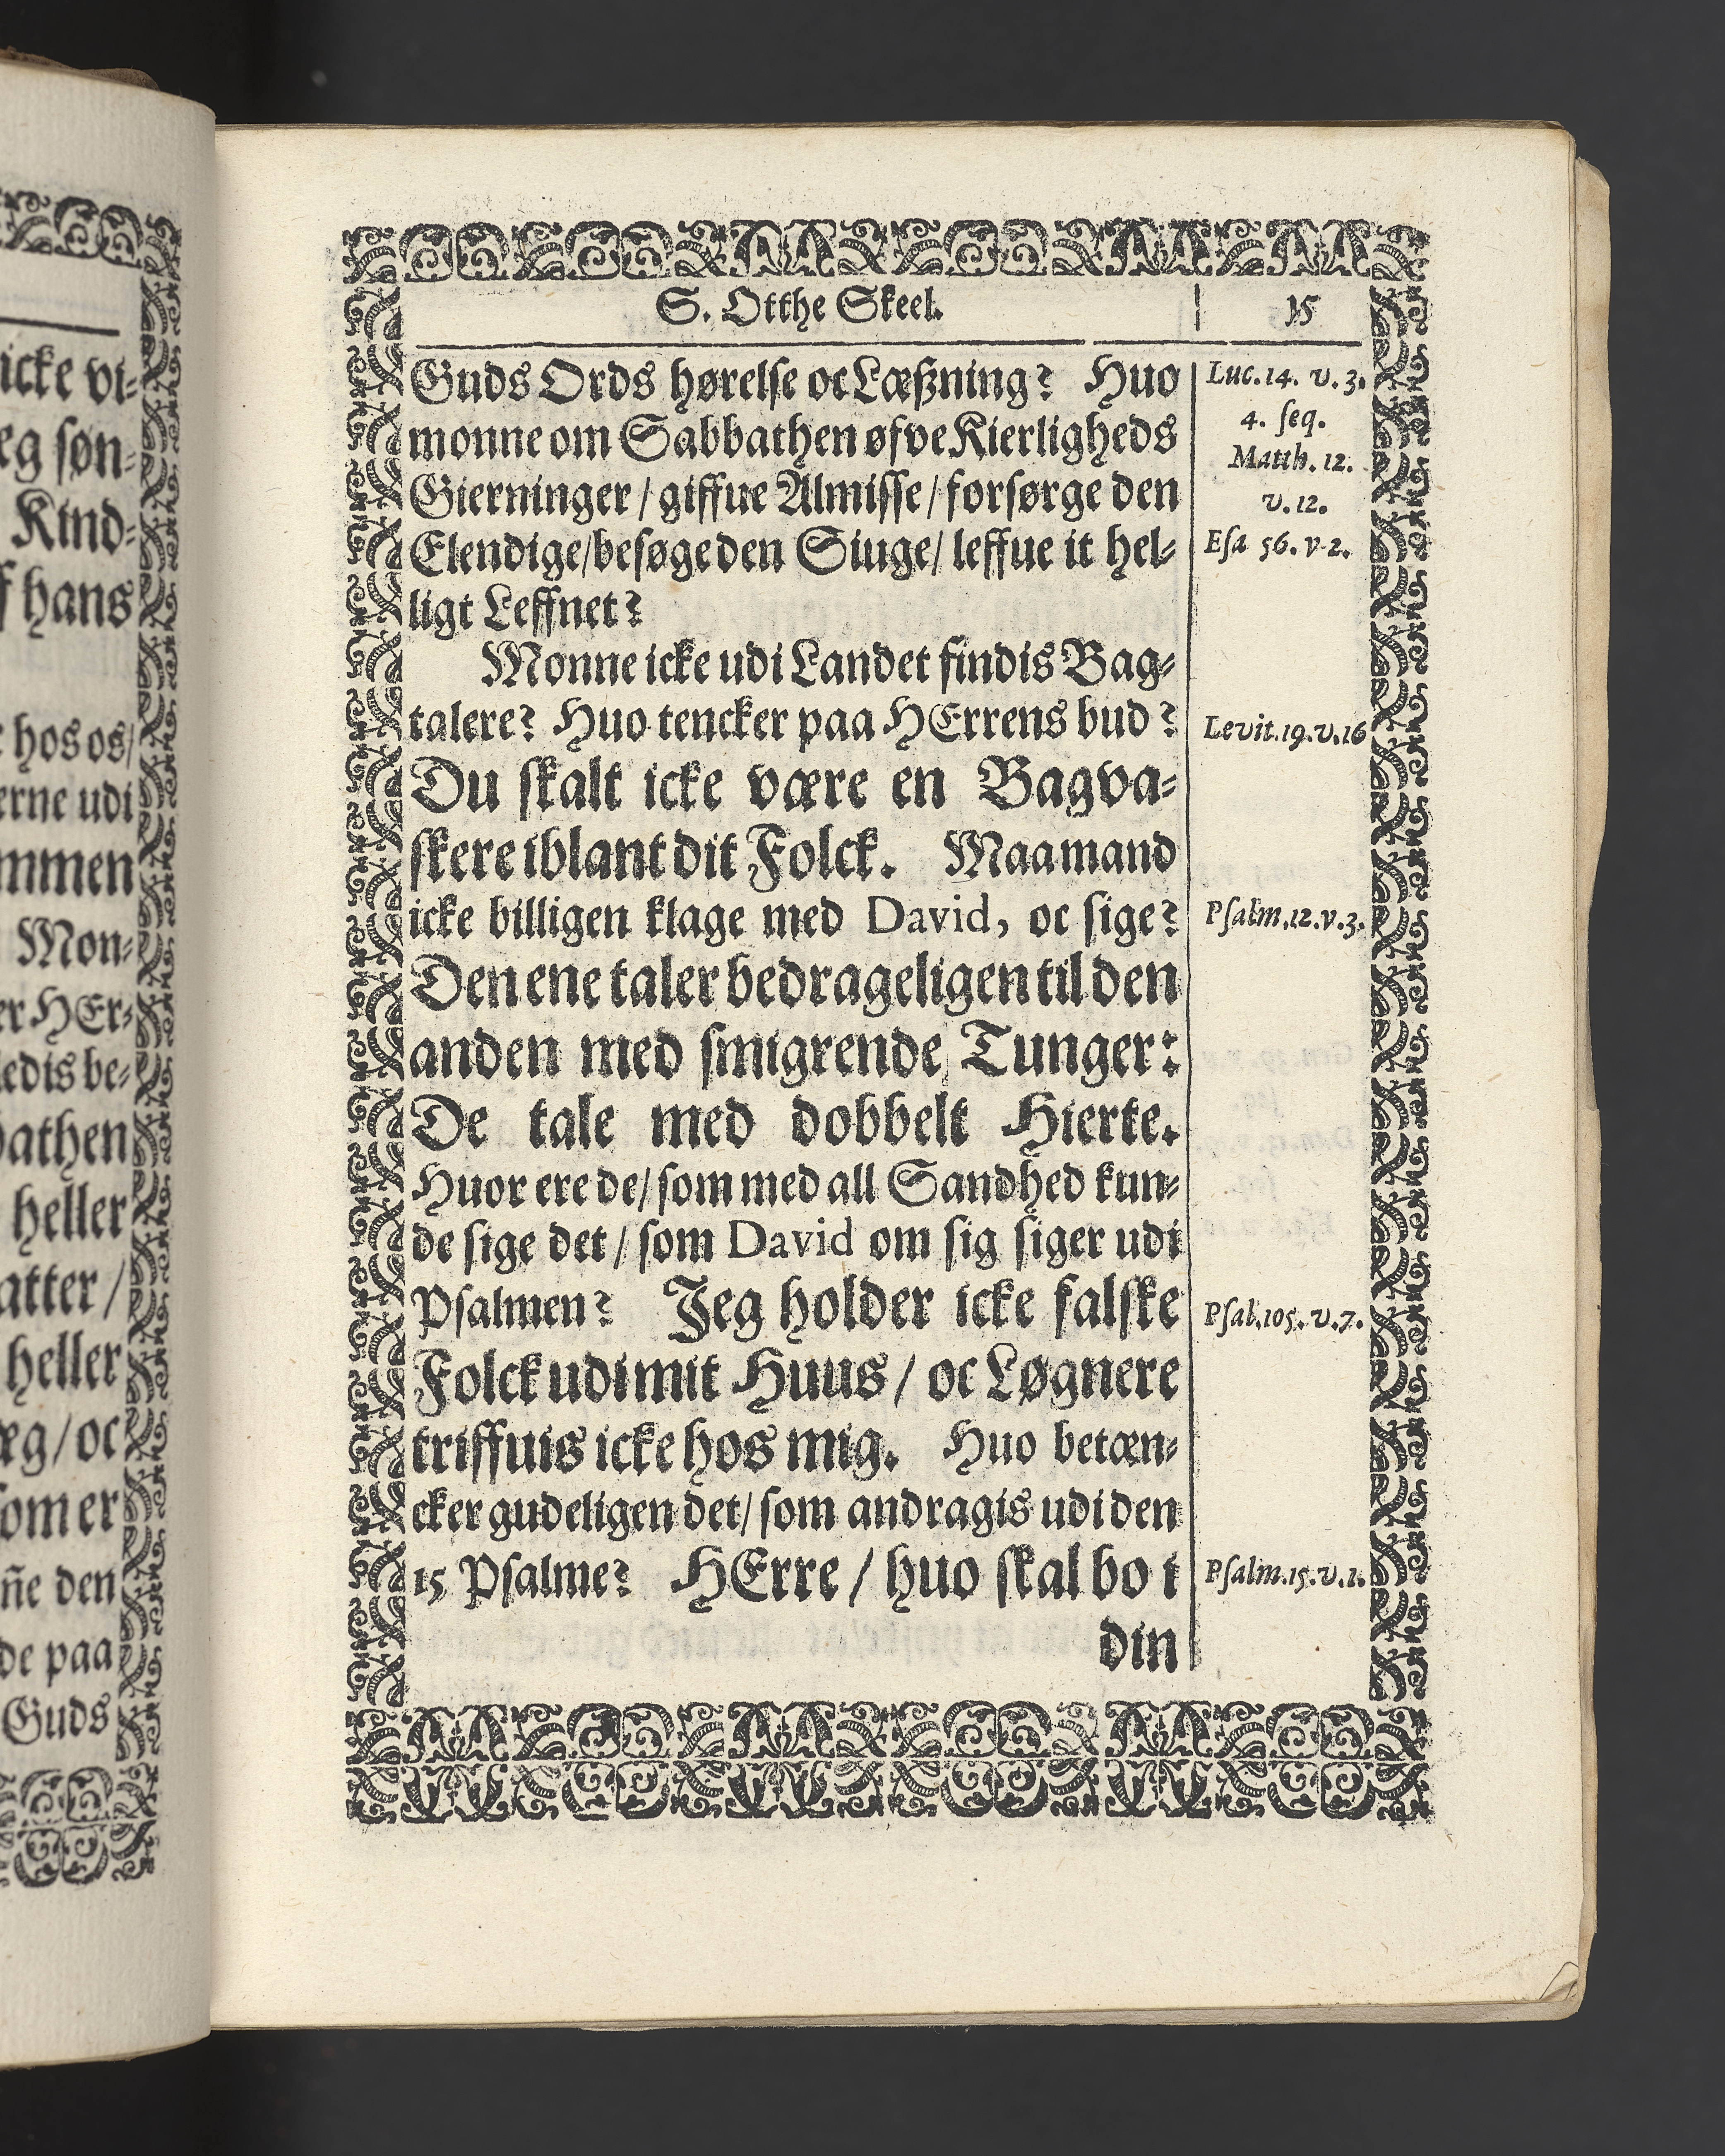 icke vi-
eg søn-
Kind-
f hans
hos os/
erne udi
mmen
Mon-
er HEr-
ledis be-
bathen
heller
atter/
heller
æg/oc
som er
ñe den
de paa
Guds
S. Otthe Skeel. 15
Guds Ords hørelse oc Læßning? Huo
monne om Sabbathen øfve Kierligheds
Gierninger/giffue Almisse/forsørge den
Elendige/besøge den Siuge/leffue it hel-
ligt Leffnet?
Monne icke udi Landet findis Bag-
talere? Huo tencker paa HErrens bud?
Du skalt icke være en Bagva-
skere iblant dit Folck. Maa mand
icke billigen klage med David, oc sige?
Den ene taler bedrageligen til den
anden med smigrende Tunger:
De tale med dobbelt Hierte.
Huor ere de/som med all Sandhed kun-
de sige det/som David om sig siger udi
Psalmen? Jeg holder icke falske
Folck udi mit Huus/oc Løgnere
triffuis icke hos mig. Huo betæn-
cker gudeligen det/som andragis udi den
15 Psalme? HErre/huo skal bo i
din
Luc.14. v.3.
4. seq.
Matth. 12.
v.12.
Esa 56. v.2.
Levit.19.v.16
Psalm.12.v.3.
Psal.105.v.7.
Psalm.15.v.1.